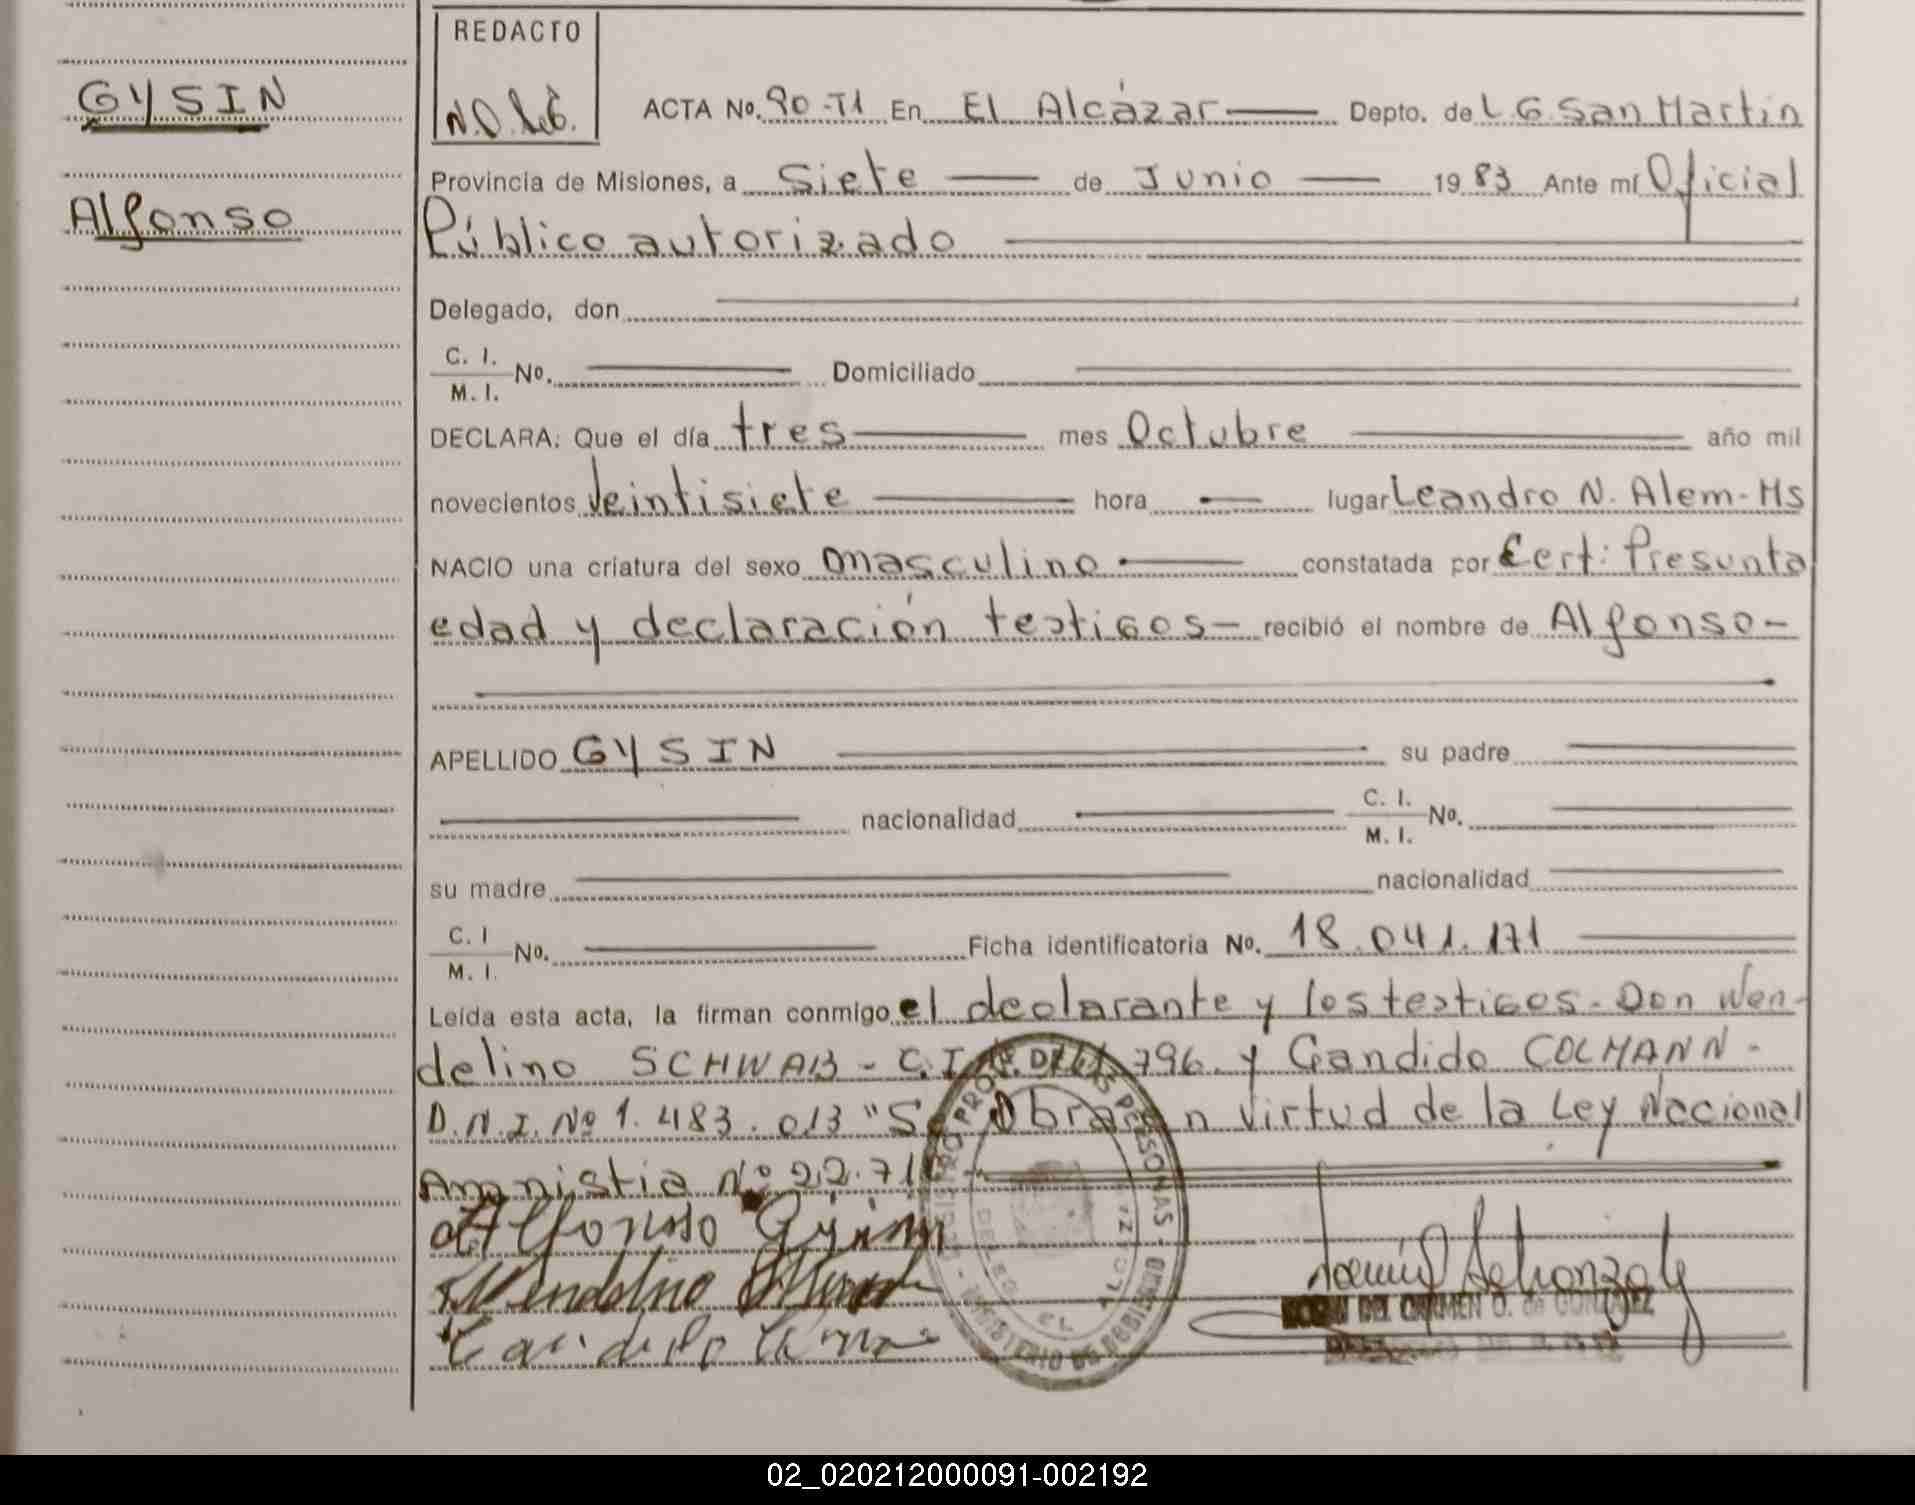 REDACTO
N.D.
GYSIN
Alfonso
ACTA No. 90-T1 En El Alcázar Depto. de L G. San Martín
Provincia de Misiones, a siete de Junio 1983 Ante mí Oficial
Público autorizado
Delegado, don
C. I. No. Domiciliado
M. I.
DECLARA: Que el día tres mes Octubre año mil
novecientos Veintisiete hora lugar Leandro N. Alem-Ms
NACIO una criatura del sexo masculino constatada por Cert: Presunta
edad y declaración testigos- recibió el nombre de Alfonso-
APELLIDO GYSIN su padre
nacionalidad C. I. No.
M. I.
su madre nacionalidad
C. I No. Ficha identificatoria No. 18.041.171
M. I.
Leída esta acta, la firman conmigo el declarante y los testigos. Don Wen-
delino SCHWAB - C.I. 796. y Candido COLMANN-
D.N.I. Nº 1.483.013 "Se Obra en virtud de la Ley Nacional
Amnistia Nº 22.
Alfonso Gysin
Wendelino
Candido
DEL CARMEN O. de GONZALEZ
PROV. DE LAS PERSONAS - MINISTERIO DE GOBIERNO
EL ALCAZAR
02_020212000091-002192